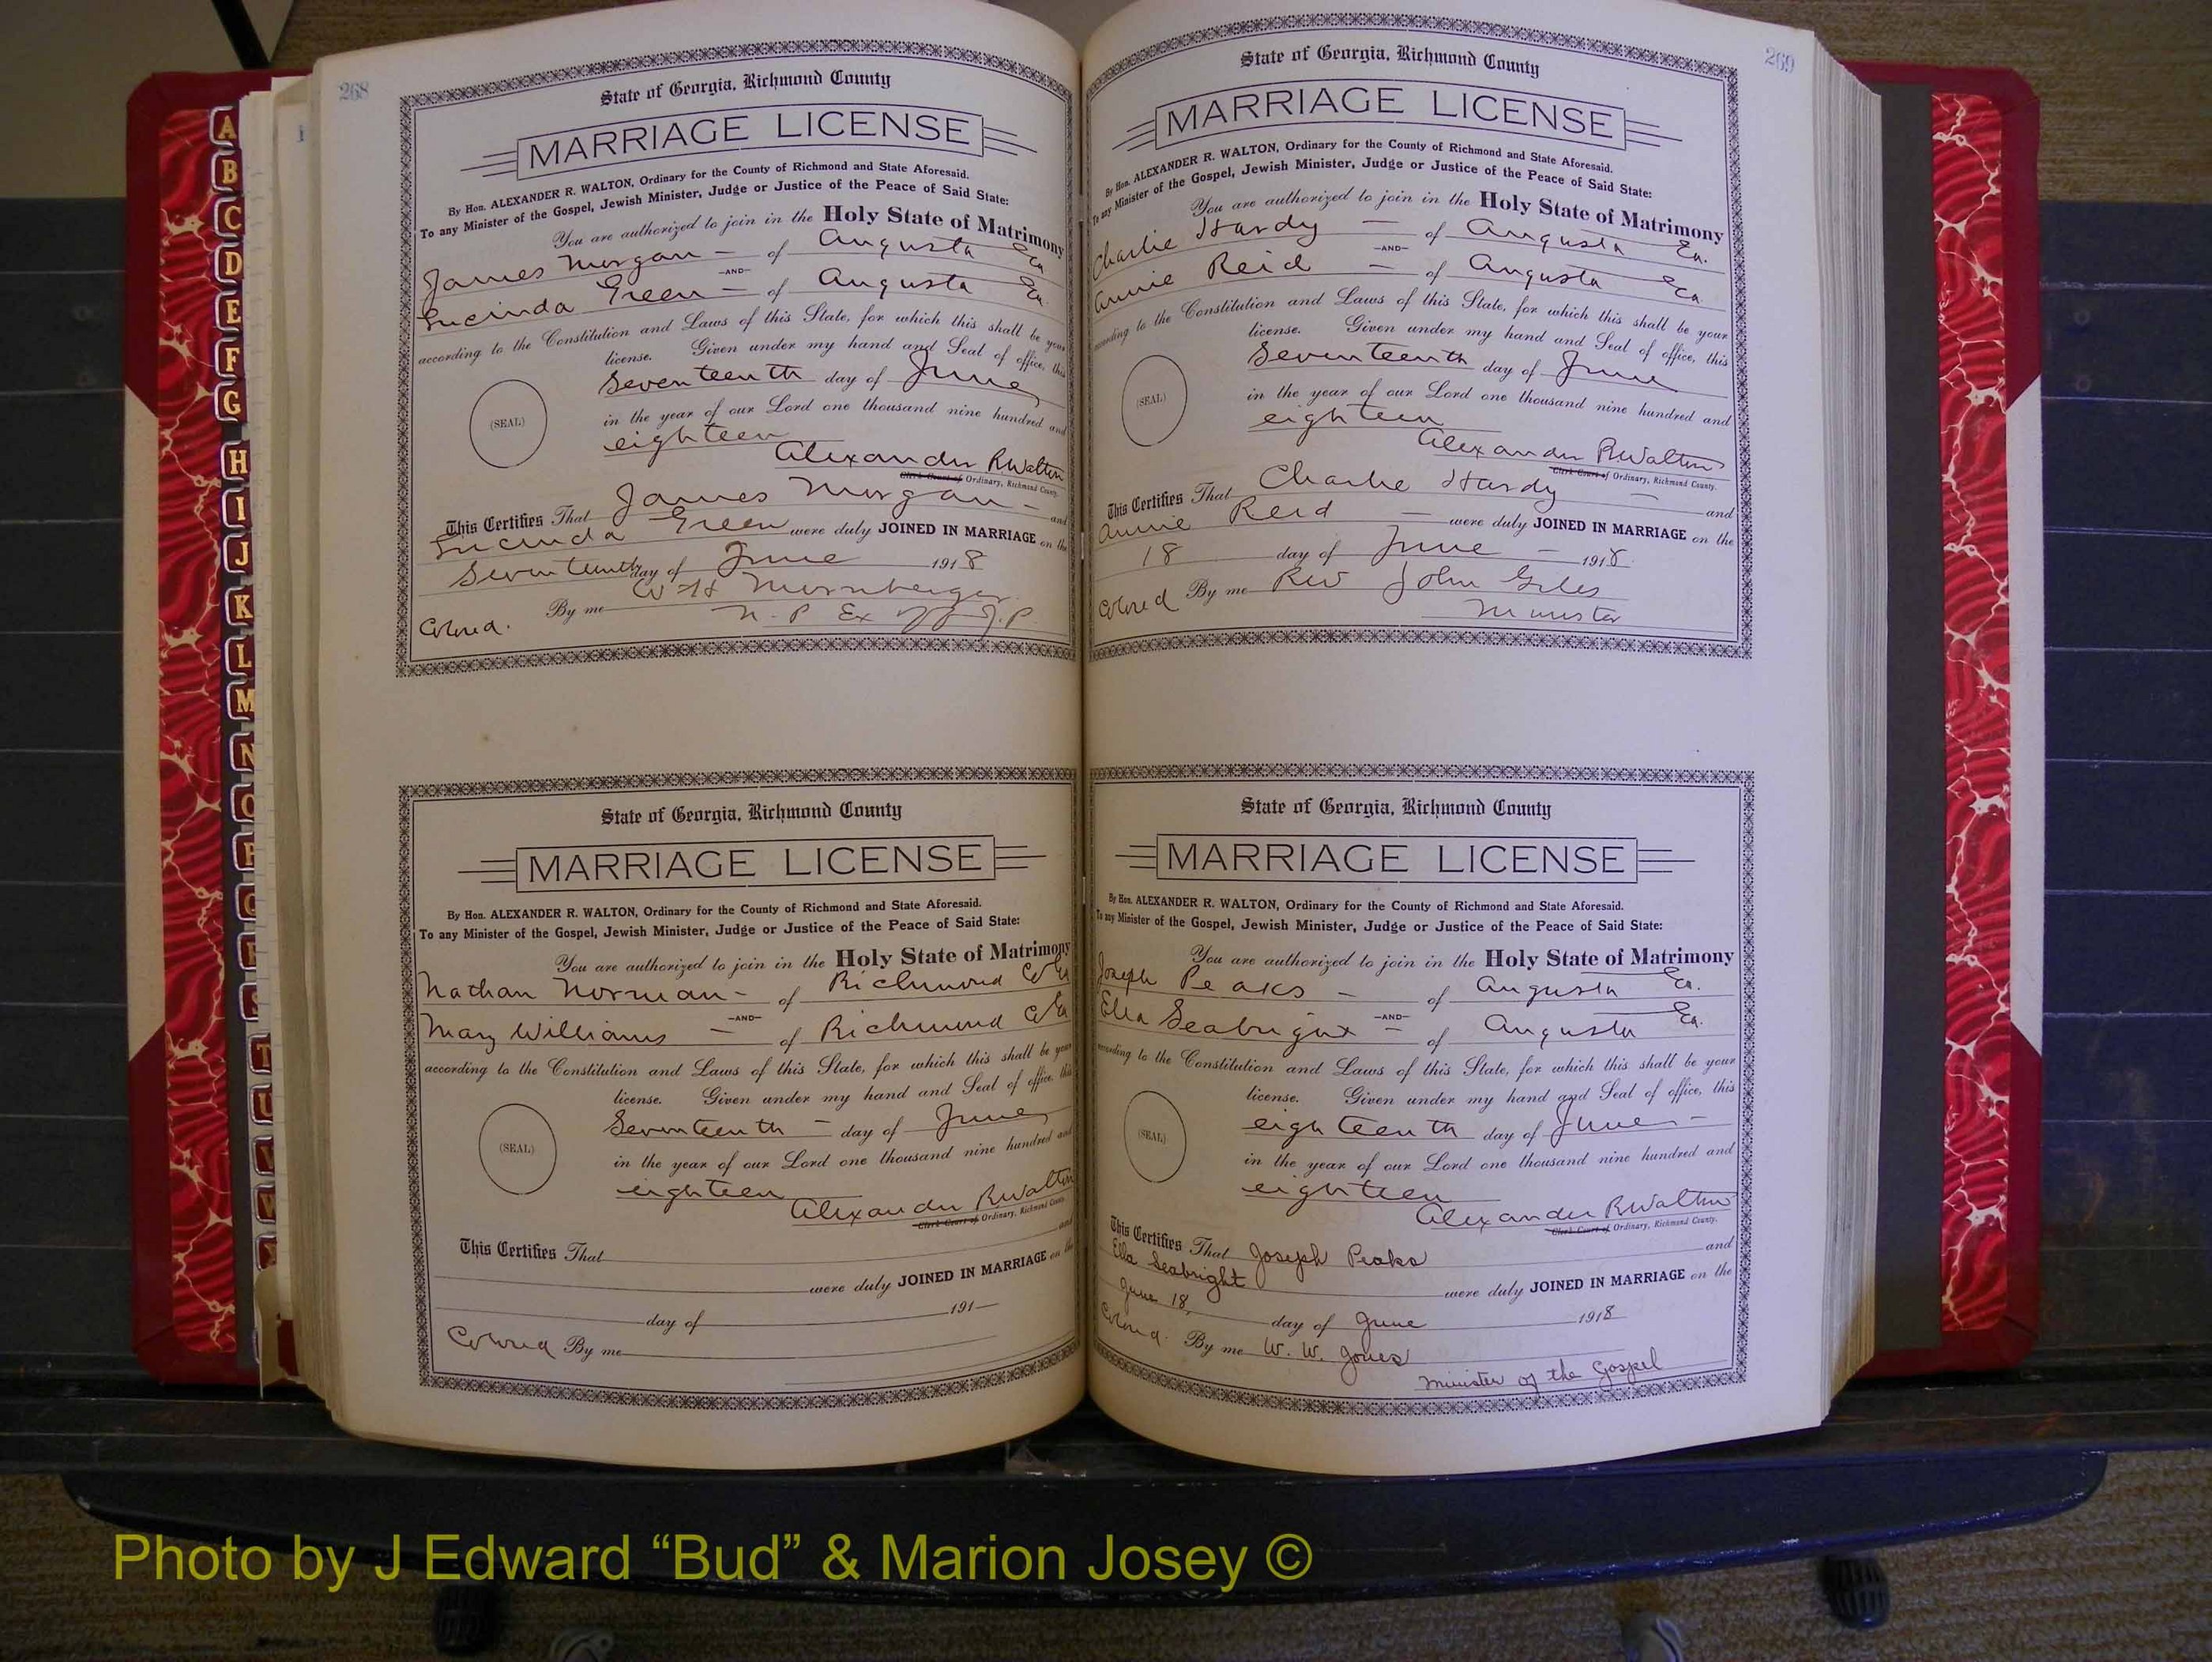 A
B
C
D
E
F
G
H
I
J
K
L
M
N
O
P
Q
R
S
T
U
V
W
Y
268
State of Georgia, Richmond County
MARRIAGE LICENSE
By Hon. ALEXANDER R. WALTON, Ordinary for the County of Richmond and State Aforesaid.
To any Minister of the Gospel, Jewish Minister, Judge or Justice of the Peace of Said State:
You are authorized to join in the Holy State of Matrimony
James Morgan - of Augusta Ga
-AND-
Lucinda Green - of Augusta Ga.
according to the Constitution and Laws of this State, for which this shall be your
license. Given under my hand and Seal of office, this
(SEAL)
Seventeenth day of June
in the year of our Lord one thousand nine hundred and
eighteen
Alexander R Walton
Clerk Court of Ordinary, Richmond County.
This Certifies That James Morgan - and
Lucinda Green were duly JOINED IN MARRIAGE on the
Seventeenth day of June 1918
By me W H
N. P. Ex J.P.
Colored.
State of Georgia, Richmond County
MARRIAGE LICENSE
By Hon. ALEXANDER R. WALTON, Ordinary for the County of Richmond and State Aforesaid.
To any Minister of the Gospel, Jewish Minister, Judge or Justice of the Peace of Said State:
You are authorized to join in the Holy State of Matrimony
Nathan Norman - of Richmond Co Ga
-AND-
Mary Williams - of Richmond Co Ga
according to the Constitution and Laws of this State, for which this shall be your
license. Given under my hand and Seal of office, this
(SEAL)
Seventeenth - day of June
in the year of our Lord one thousand nine hundred and
eighteen
Alexander R Walton
Clerk Court of Ordinary, Richmond County.
This Certifies That and
were duly JOINED IN MARRIAGE on the
day of 191
Colored By me
269
State of Georgia, Richmond County
MARRIAGE LICENSE
By Hon. ALEXANDER R. WALTON, Ordinary for the County of Richmond and State Aforesaid.
To any Minister of the Gospel, Jewish Minister, Judge or Justice of the Peace of Said State:
You are authorized to join in the Holy State of Matrimony
Charlie Hardy - of Augusta Ga.
-AND-
Annie Reid - of Augusta Ga
according to the Constitution and Laws of this State, for which this shall be your
license. Given under my hand and Seal of office, this
(SEAL)
Seventeenth day of June
in the year of our Lord one thousand nine hundred and
eighteen
Alexander R Walton
Clerk Court of Ordinary, Richmond County.
This Certifies That Charlie Hardy - and
Annie Reid - were duly JOINED IN MARRIAGE on the
18 day of June - 1918.
Colored By me Rev John Giles
Minister
State of Georgia, Richmond County
MARRIAGE LICENSE
By Hon. ALEXANDER R. WALTON, Ordinary for the County of Richmond and State Aforesaid.
To any Minister of the Gospel, Jewish Minister, Judge or Justice of the Peace of Said State:
You are authorized to join in the Holy State of Matrimony
Joseph Peaks - of Augusta Ga.
-AND-
Ella Seabright - of Augusta Ga.
according to the Constitution and Laws of this State, for which this shall be your
license. Given under my hand and Seal of office, this
(SEAL)
eighteenth day of June -
in the year of our Lord one thousand nine hundred and
eighteen
Alexander R Walton
Clerk Court of Ordinary, Richmond County.
This Certifies That Joseph Peaks and
Ella Seabright were duly JOINED IN MARRIAGE on the
June 18, day of June 1918
Colored. By me W. W. Jones
Minister of the Gospel
Photo by J Edward “Bud” & Marion Josey ©